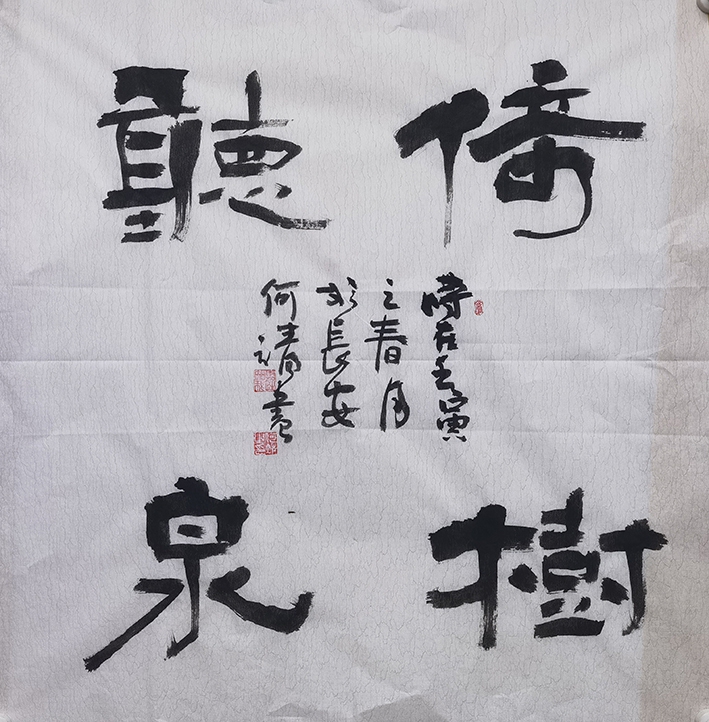 倚樹
聽泉
時在壬寅
之春月
於長安
何 書